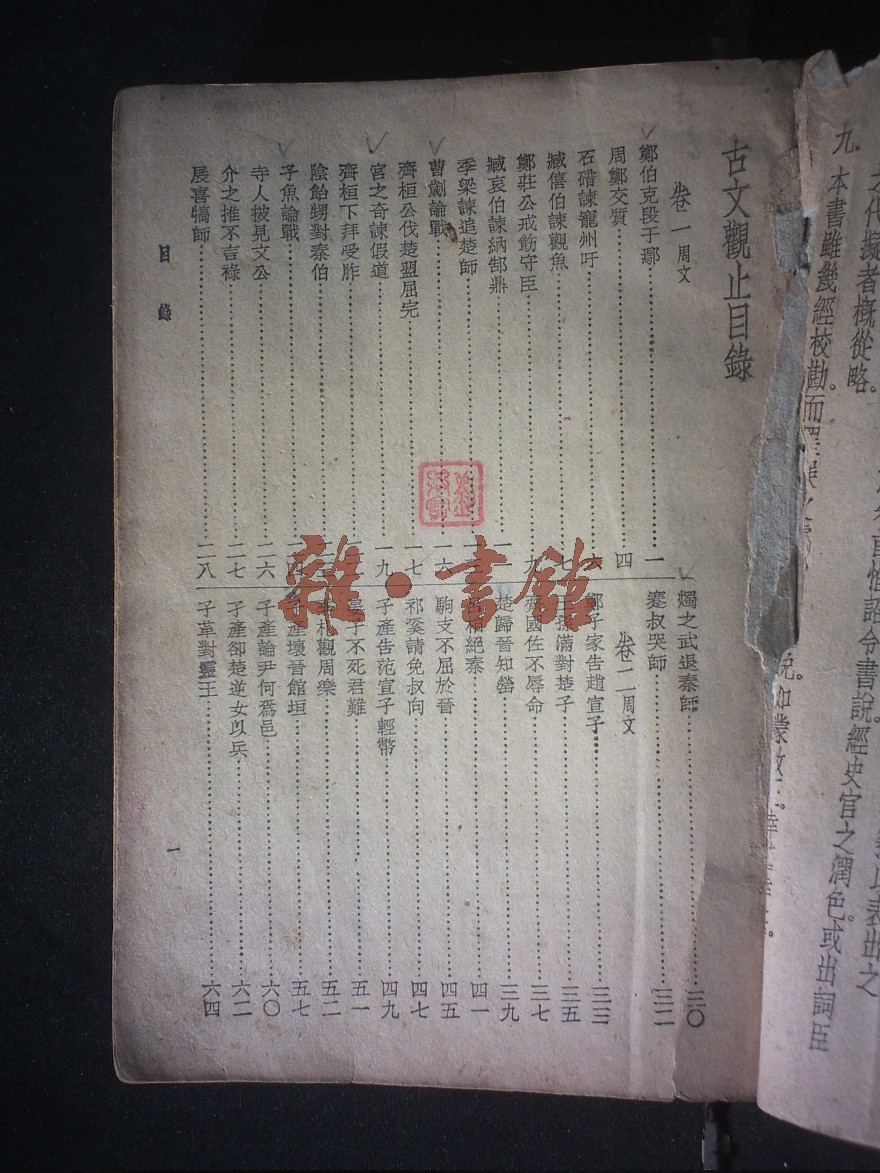 九、本書雖幾經校勘。而
之代擬者概從略。
詔令書說。經史官之潤色。或出詞臣
古文觀止目錄
卷一 周文
鄭伯克段于鄢 一
周鄭交質 四
石碏諫寵州吁 六
臧僖伯諫觀魚 七
鄭莊公戒飭守臣 九
臧哀伯諫納郜鼎
季梁諫追楚師
曹劌論戰 一六
齊桓公伐楚盟屈完 一七
宮之奇諫假道 一九
齊桓下拜受胙
陰飴甥對秦伯
子魚論戰 二四
寺人披見文公 二六
介之推不言祿 二七
展喜犒師 二八
燭之武退秦師 三〇
蹇叔哭師 三二
卷二 周文
鄭子家告趙宣子 三三
王孫滿對楚子 三五
齊國佐不辱命 三七
楚歸晉知罃 三九
呂相絕秦 四一
駒支不屈於晉 四五
祁奚請免叔向 四七
子產告范宣子輕幣 四九
晏子不死君難 五一
季札觀周樂 五二
子產壞晉館垣 五七
子產論尹何為邑 六〇
子產卻楚逆女以兵 六二
子革對靈王 六四
目錄
一
雜·書館